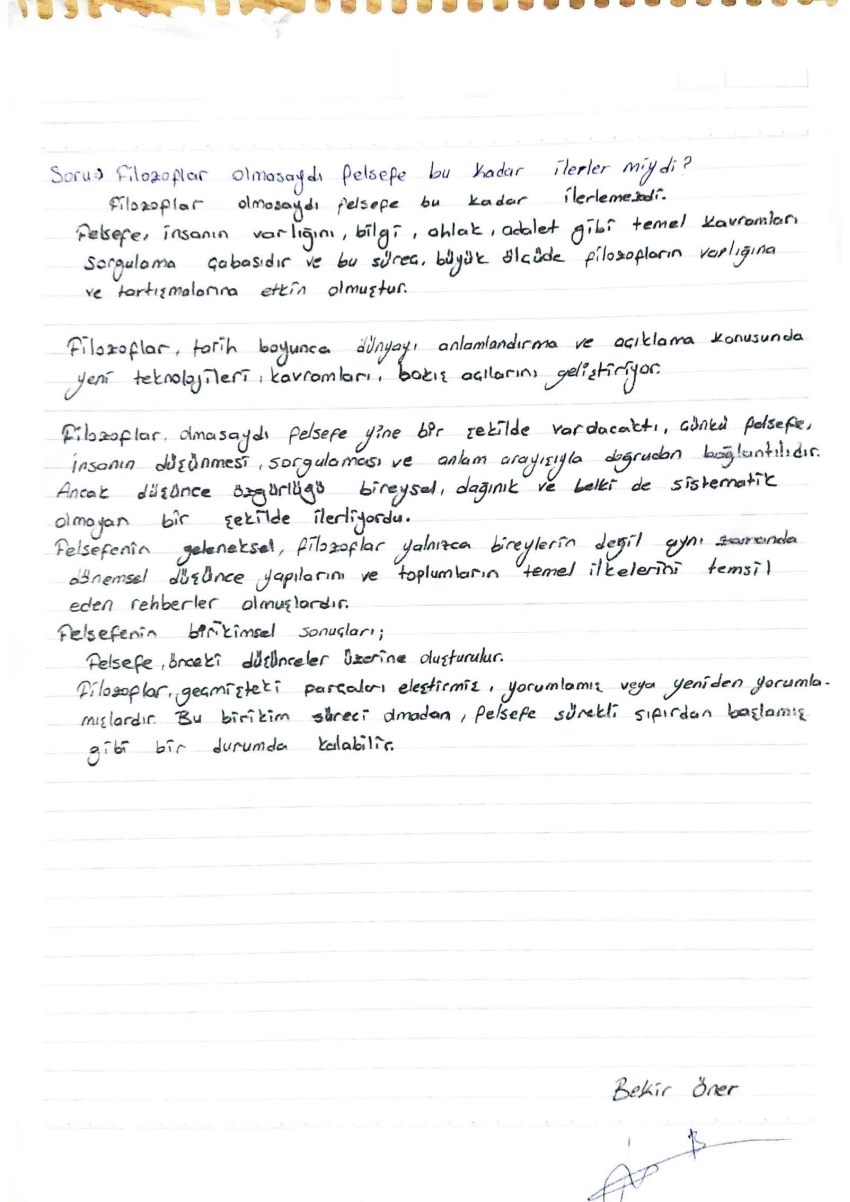 Soru⇒ Filozoflar olmasaydı felsefe bu kadar ilerler miydi?
Filozoflar olmasaydı felsefe bu kadar ilerlemezdi.
Felsefe, insanın varlığını, bilgi, ahlak, adalet gibi temel kavramları
sorgulama çabasıdır ve bu sürec, büyük ölçüde filozofların varlığına
ve tartışmalarına etkin olmuştur.
Filozoflar, tarih boyunca dünyayı anlamlandırma ve açıklama konusunda
yeni teknolojileri, kavramları, bakış açılarını geliştiriyor.
Filozoflar olmasaydı felsefe yine bir şekilde vardacaktı, çünkü felsefe,
insanın düşünmesi, sorgulaması ve anlam arayışıyla doğrudan bağlantılıdır.
Ancak düşünce özgürlüğü bireysel, dağınık ve belki de sistematik
olmayan bir şekilde ilerliyordu.
Felsefenin geleneksel, filozoflar yalnızca bireylerin değil aynı zamanda
dönemsel düşünce yapılarını ve toplumların temel ilkelerini temsil
eden rehberler olmuşlardır.
Felsefenin birikimsel sonuçları;
Felsefe, önceki düşünceler üzerine oluşturulur.
Filozoflar, geçmişteki parçaları eleştirmiş, yorumlamış veya yeniden yorumla-
mışlardır. Bu birikim süreci olmadan, felsefe sürekli sıfırdan başlamış
gibi bir durumda kalabilir.
Bekir Öner